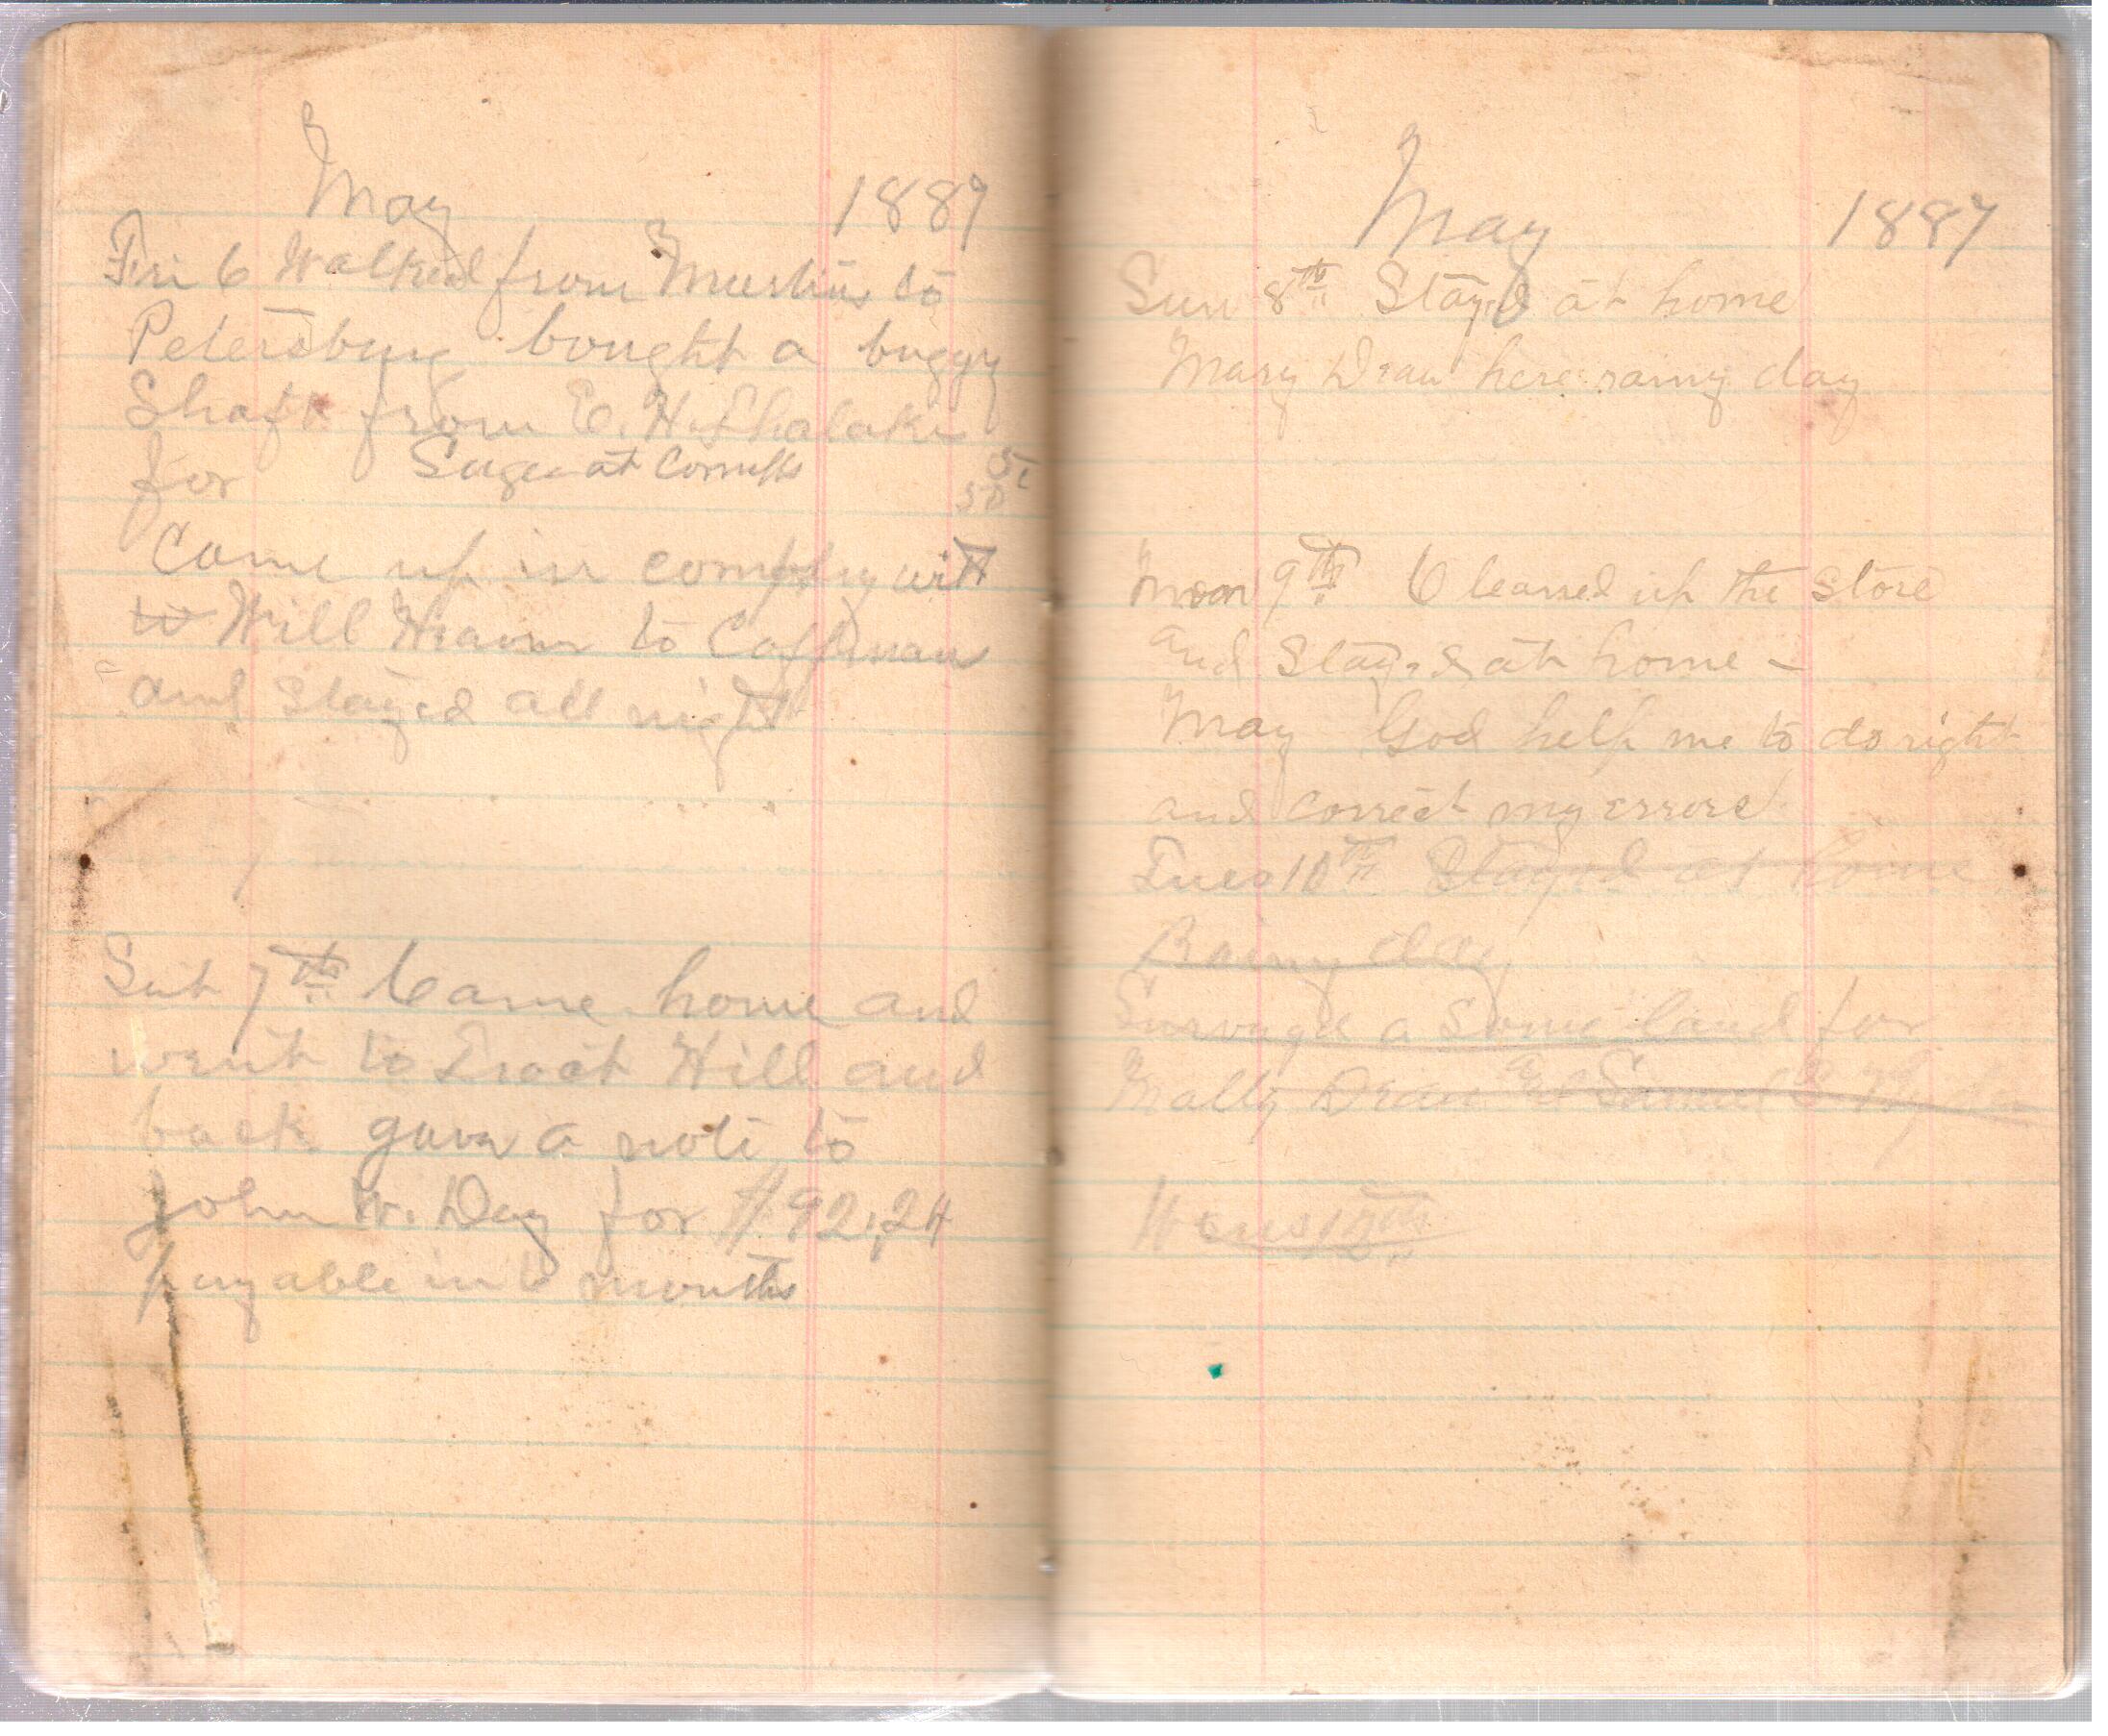 May 1887
Fri 6 Walked from to
Petersburg bought a buggy
Shaft from E. H.
for at 50
Came up in company with
w Will to Coffman
and stayed all night
Sat 7th Came home and
went to Hill and
back gave a note to
John W. Day for $92,24
payable in 6 months
May 1887
Sun 8th Stayed at home
Mary Dean here rainy day
Mon 9th Cleaned up the store
and stayed at home –
May God help me to do right
and correct my errors
Tues 10th Stayed at home
Rainy day
Surveyed a some land for
Dean and Samuel